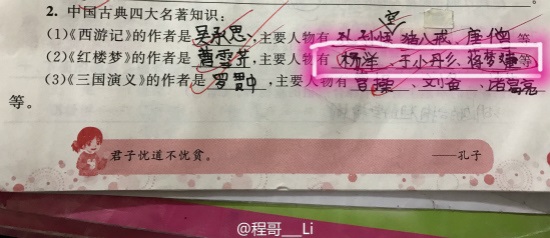 2. 中国古典四大名著知识:
(1)《西游记》的作者是吴承恩,主要人物有孙悟空 猪八戒、唐僧等
(2)《红楼梦》的作者是曹雪芹,主要人物有杨洋、于小彤、杨梦 等
(3)《三国演义》的作者是罗贯中,主要人物有曹操、刘备、诸葛亮
等。
君子忧道不忧贫。 ——孔子
@程哥__Li